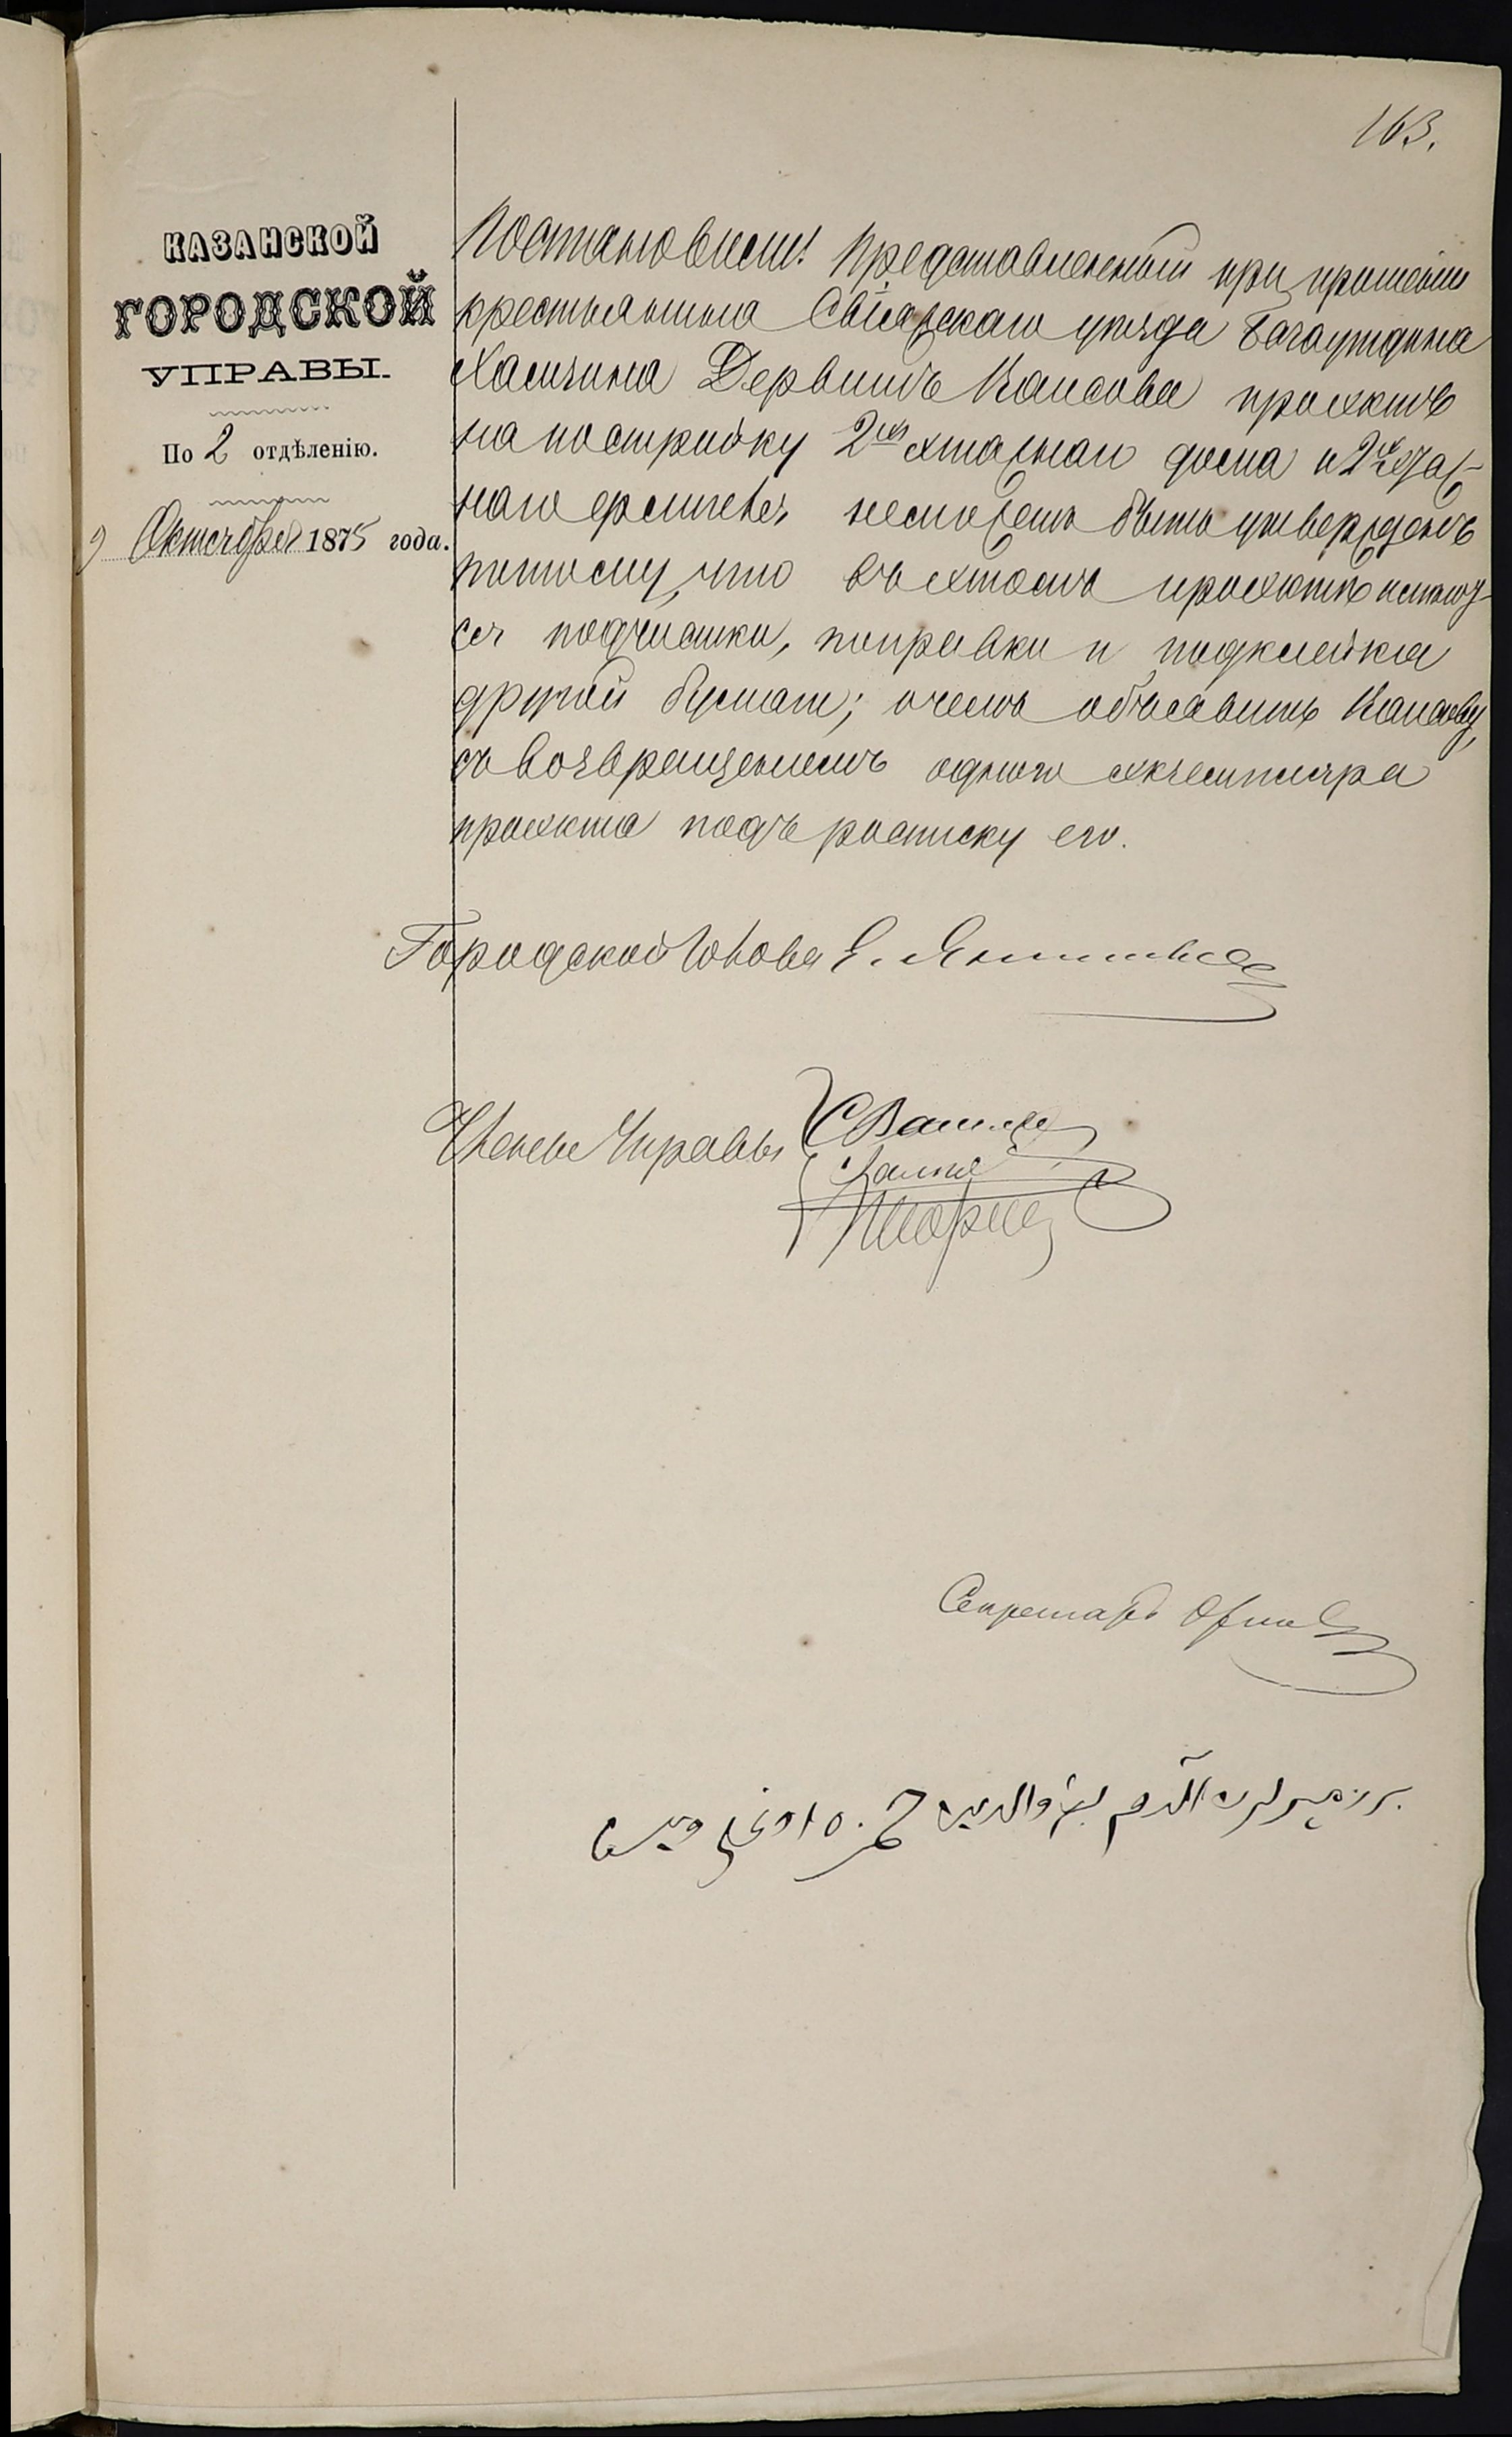 163.
КАЗАНСКОЙ
ГОРОДСКОЙ
УПРАВЫ.
По 2 отдѣленію.
9 Октября 1875 года.
Постановили: Представленный при прошеніи
крестьянина Свіяжскаго уѣзда Багаутдина
Хамзина Дервишъ Каисова проэктъ
на постройку 2хъ этажнаго дома и 2хъ этаж-
наго флигеля несможетъ быть утвержденъ
потому, что въ этомъ проэктѣ имѣют-
ся подчистки, поправки и подклейка
другой бумаги; о чемъ объявить Каисову,
съ возвращеніемъ одного экземпляра
проэкта подъ росписку его.
Городской Голова Э. Янишевскій
Члены Управы
Секретарь